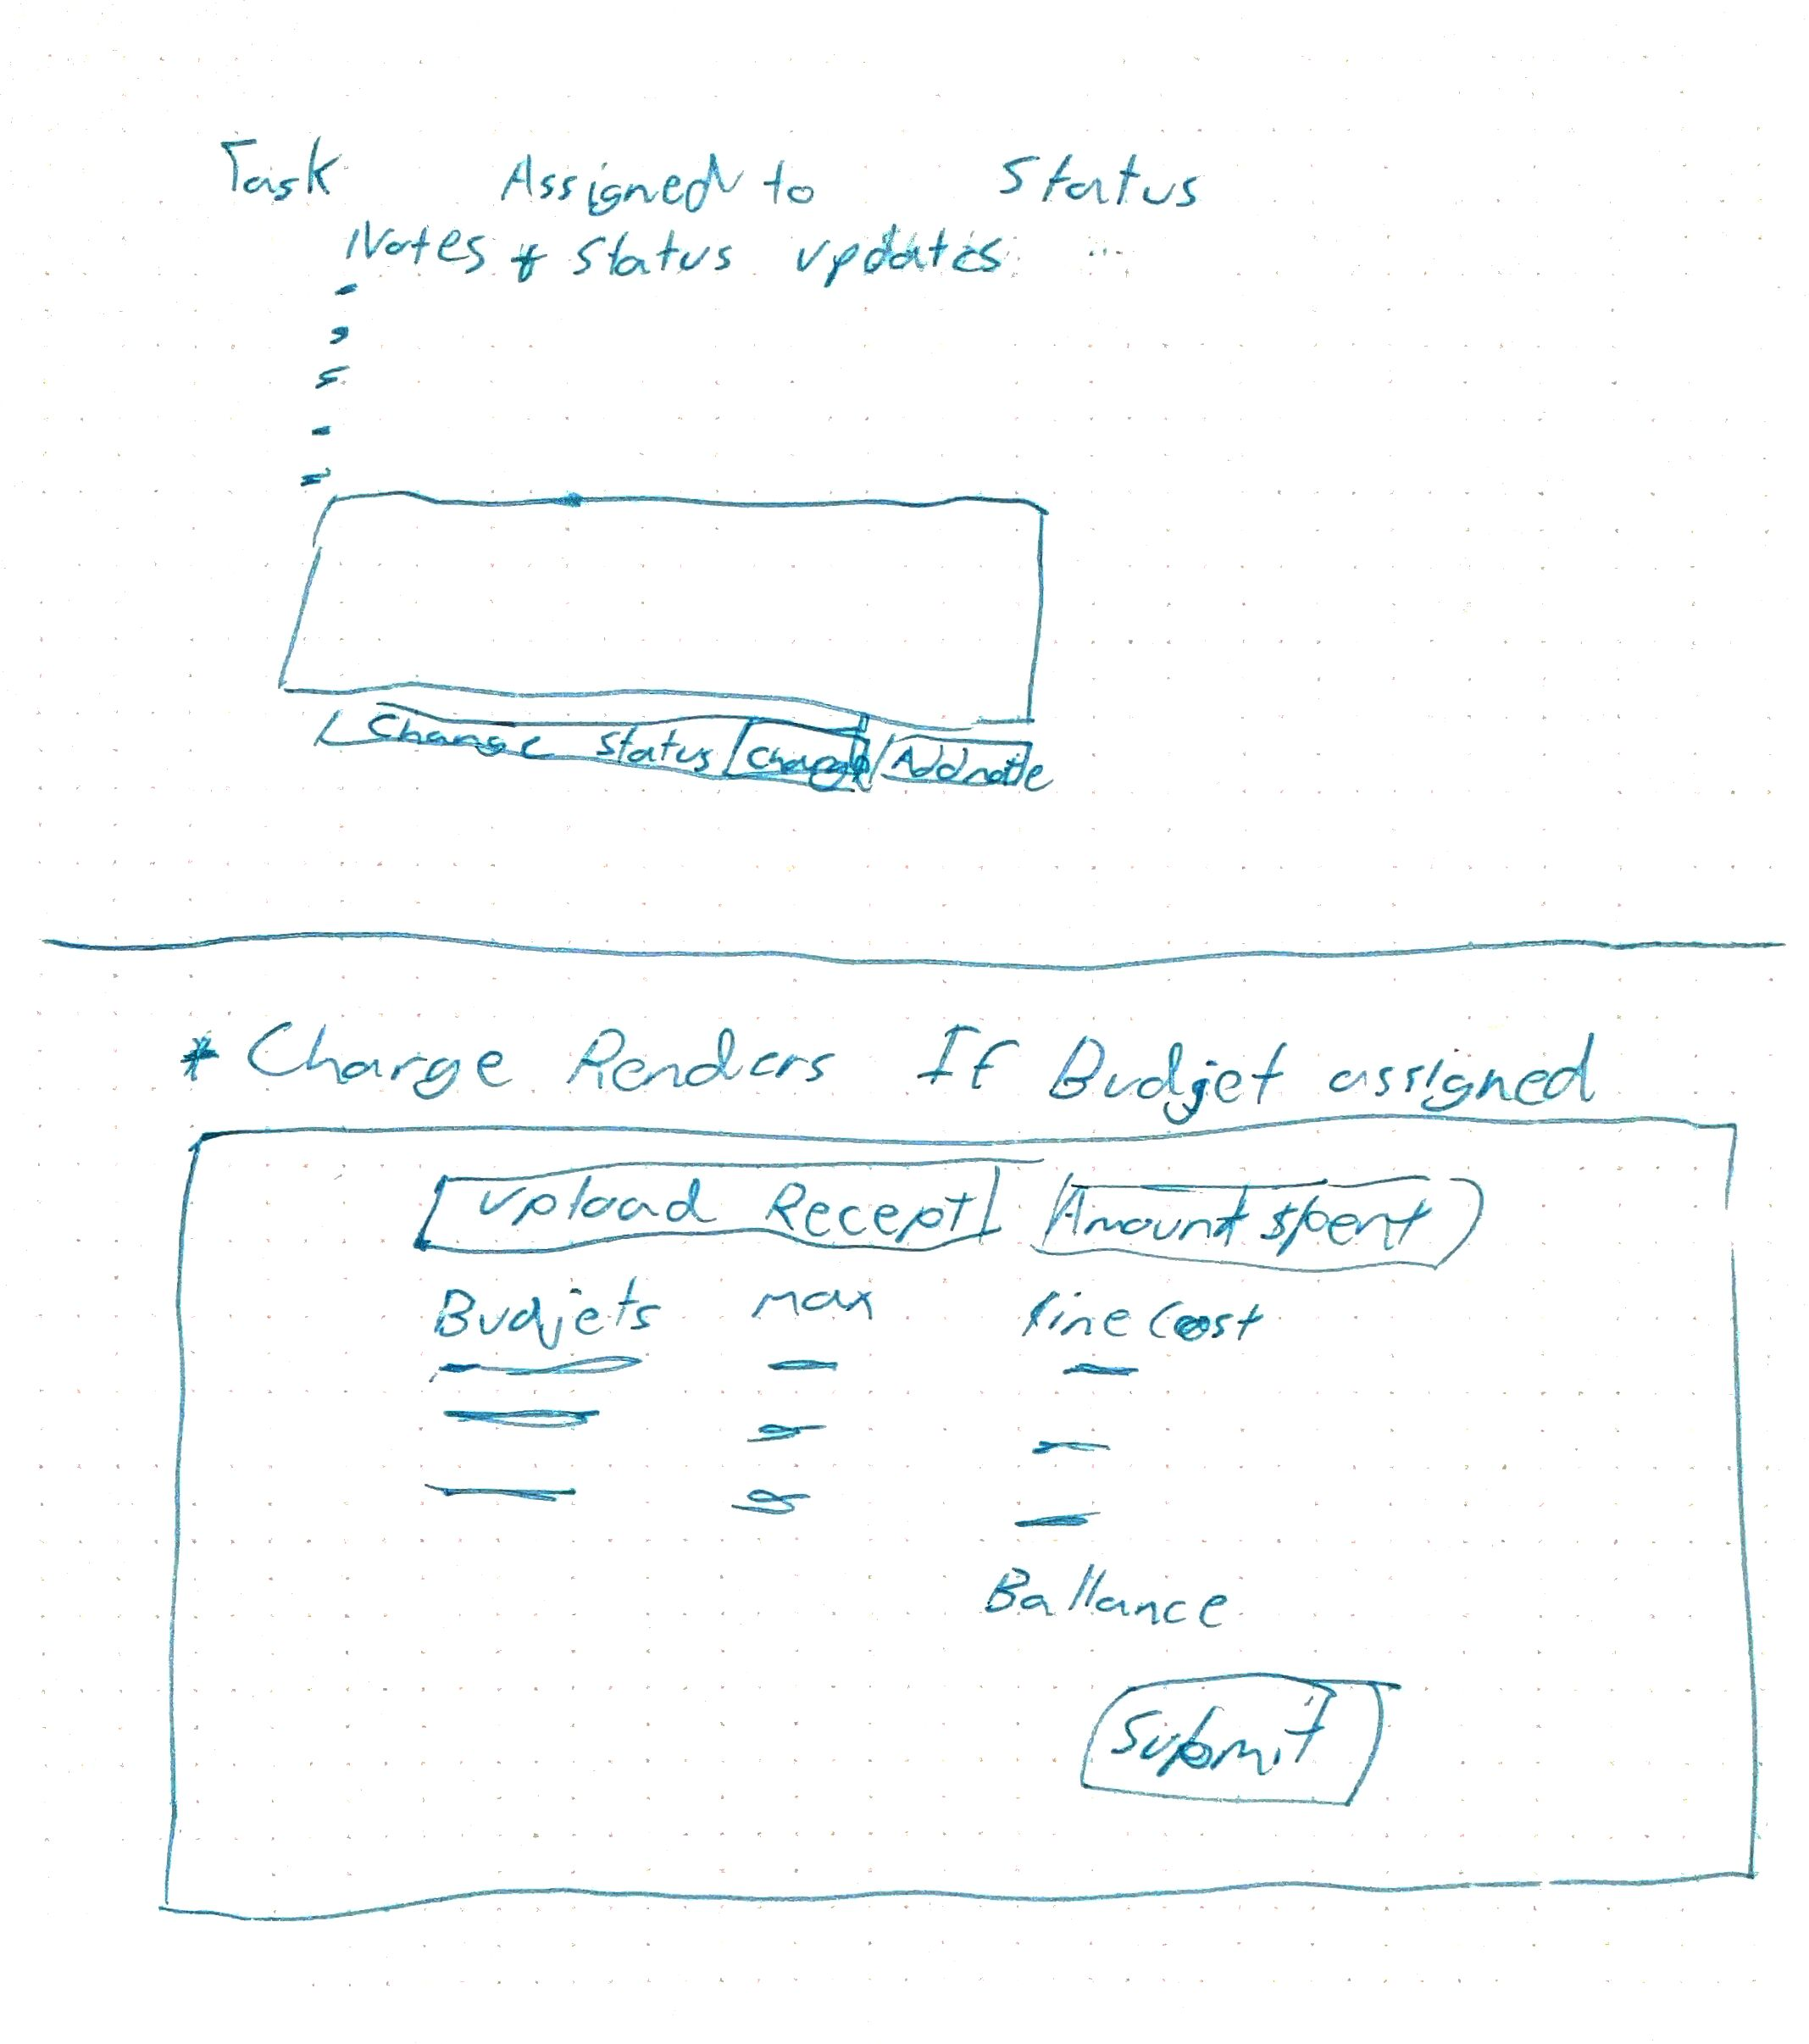 Task Assigned to Status
Notes & Status updates ...
Change Status Charge Add note
* Charge Renders If Budjet assigned
Upload Recept Amount spent
Budjets max line Cost
Ballance
Submit